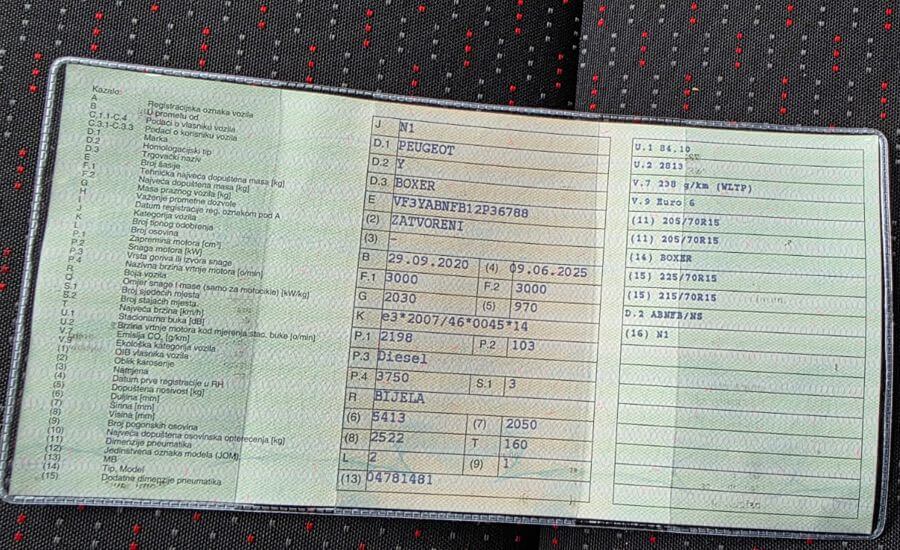 Kazalo:
A Registracijska oznaka vozila
B U prometu od
C.1.1-C.4 Podaci o vlasniku vozila
C.3.1-C.3.3 Podaci o korisniku vozila
D.1 Marka
D.2 Homologacijski tip
D.3 Trgovački naziv
E Broj šasije
F.1 Tehnička najveća dopuštena masa [kg]
F.2 Najveća dopuštena masa [kg]
G Masa praznog vozila [kg]
H Važenje prometne dozvole
I Datum registracije reg. oznakom pod A
J Kategorija vozila
K Broj tipnog odobrenja
L Broj osovina
P.1 Zapremina motora [cm³]
P.2 Snaga motora [kW]
P.3 Vrsta goriva ili izvora snage
P.4 Nazivna brzina vrtnje motora [o/min]
R Boja vozila
Q Omjer snage i mase (samo za motocikle) [kW/kg]
S.1 Broj sjedećih mjesta
S.2 Broj stajaćih mjesta
T Najveća brzina [km/h]
U.1 Stacionarna buka [dB]
U.2 Brzina vrtnje motora kod mjerenja stac. buke [o/min]
V.7 Emisija CO₂ [g/km]
V.9 Ekološka kategorija vozila
(1) OIB vlasnika vozila
(2) Oblik karoserije
(3) Namjena
(4) Datum prve registracije u RH
(5) Dopuštena nosivost [kg]
(6) Duljina [mm]
(7) Širina [mm]
(8) Visina [mm]
(9) Broj pogonskih osovina
(10) Najveća dopuštena osovinska opterećenja [kg]
(11) Dimenzije pneumatika
(12) Jedinstvena oznaka modela (JOM)
(13) MB
(14) Tip, Model
(15) Dodatne dimenzije pneumatika
J N1
D.1 PEUGEOT
D.2 Y
D.3 BOXER
E VF3YABNFB12P36788
(2) ZATVORENI
(3) -
B 29.09.2020 (4) 09.06.2025
F.1 3000 F.2 3000
G 2030 (5) 970
K e3*2007/46*0045*14
P.1 2198 P.2 103
P.3 Diesel
P.4 3750 S.1 3
R BIJELA
(6) 5413 (7) 2050
(8) 2522 T 160
L 2 (9) 1
(13) 04781481
U.1 84,10
U.2 2813
V.7 238 g/km (WLTP)
V.9 Euro 6
(11) 205/70R15
(11) 205/70R15
(14) BOXER
(15) 225/70R15
(15) 215/70R15
D.2 ABNFB/NS
(16) N1